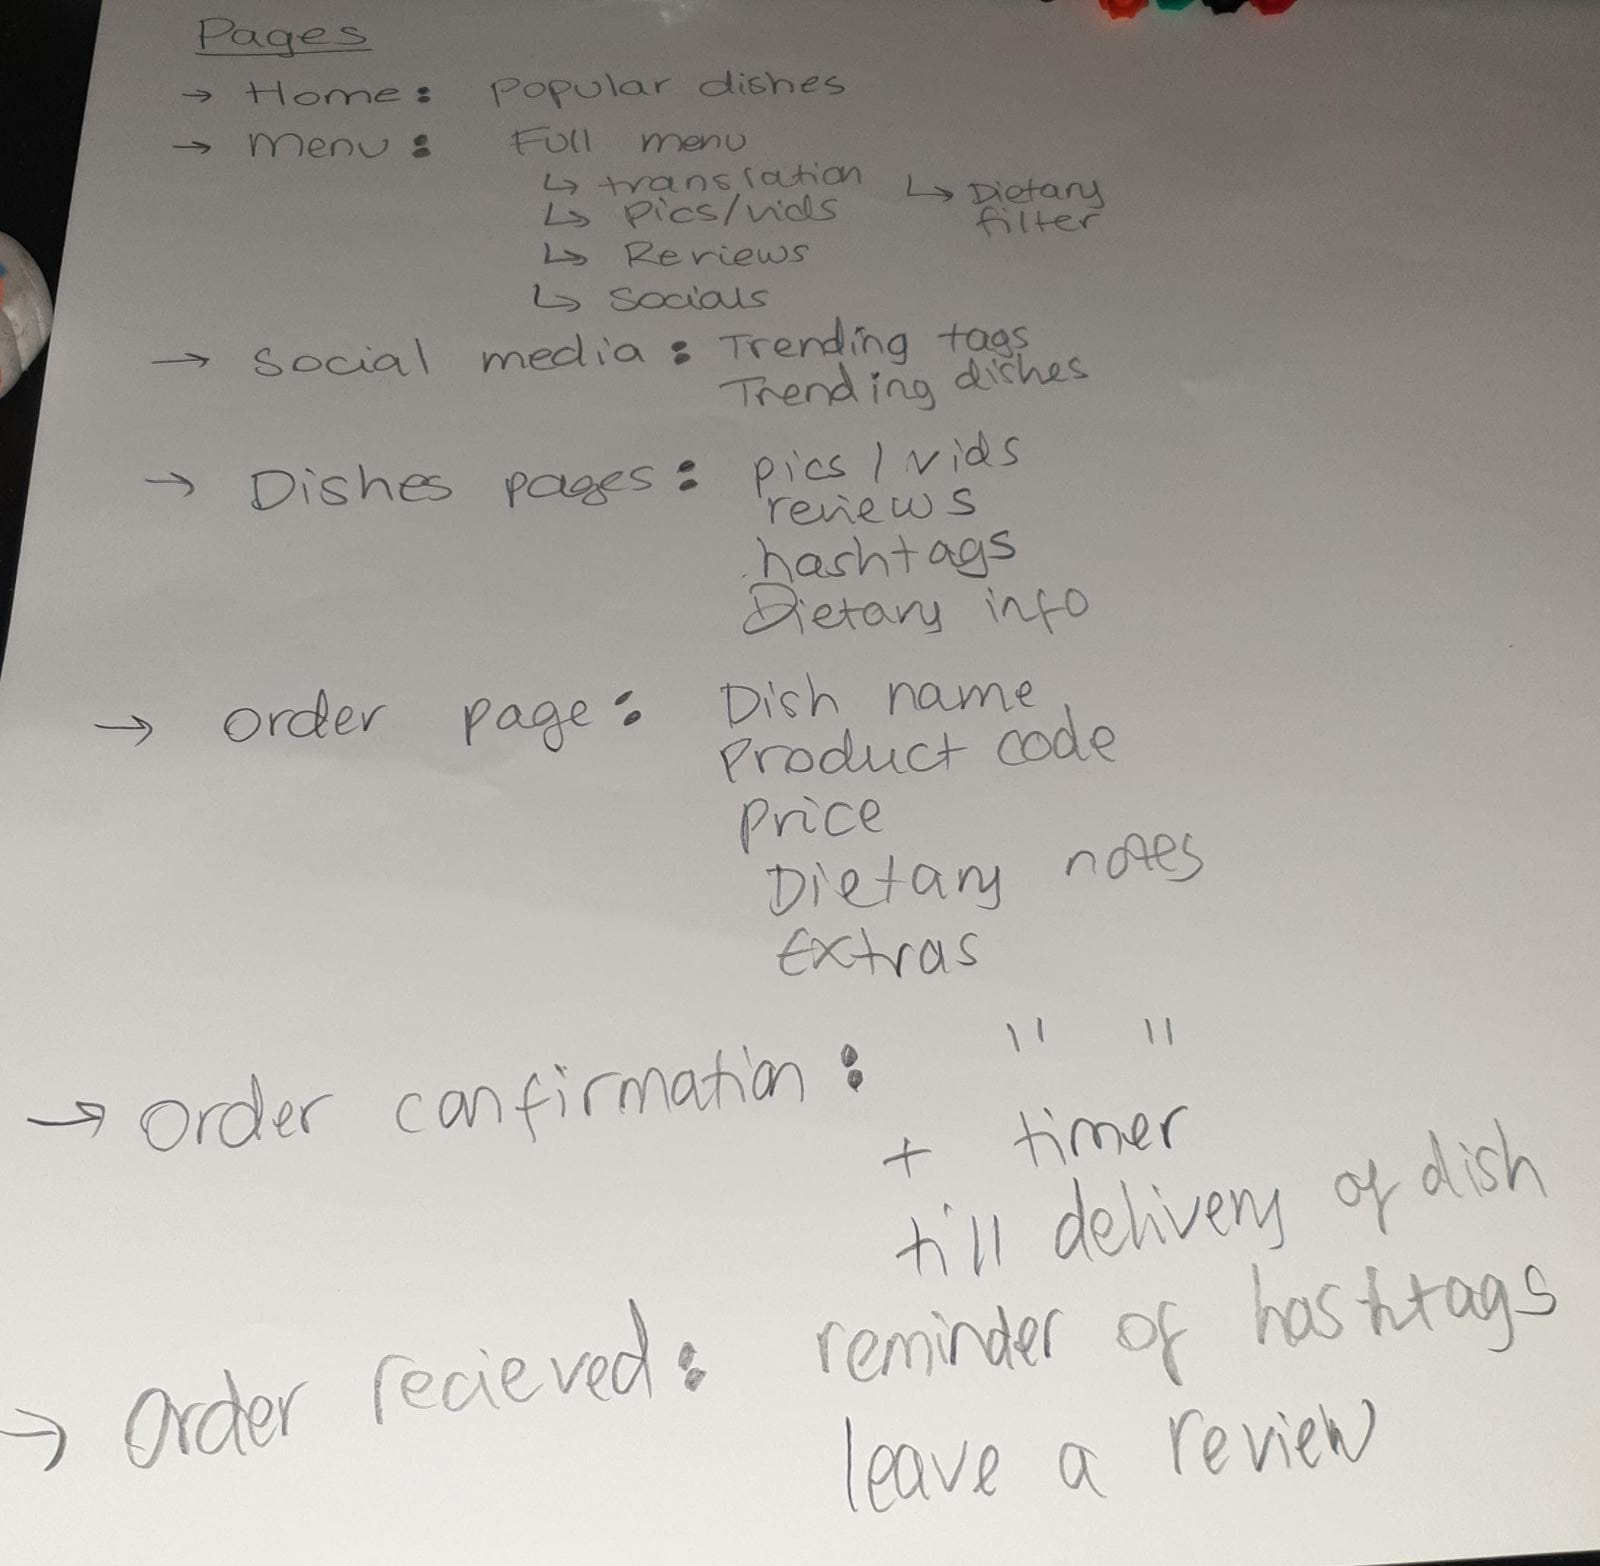 Pages
→ Home: Popular dishes
→ Menu: Full menu
↳ translation ↳ Dietary
filter
↳ Pics/vids
↳ Reviews
↳ Socials
→ Social media: Trending tags
Trending dishes
→ Dishes pages: pics / vids
reviews
hashtags
Dietary info
→ Order page: Dish name
Product code
Price
Dietary notes
Extras
→ Order confirmation: " "
+ timer
till delivery of dish
→ Order recieved: reminder of hashtags
leave a review